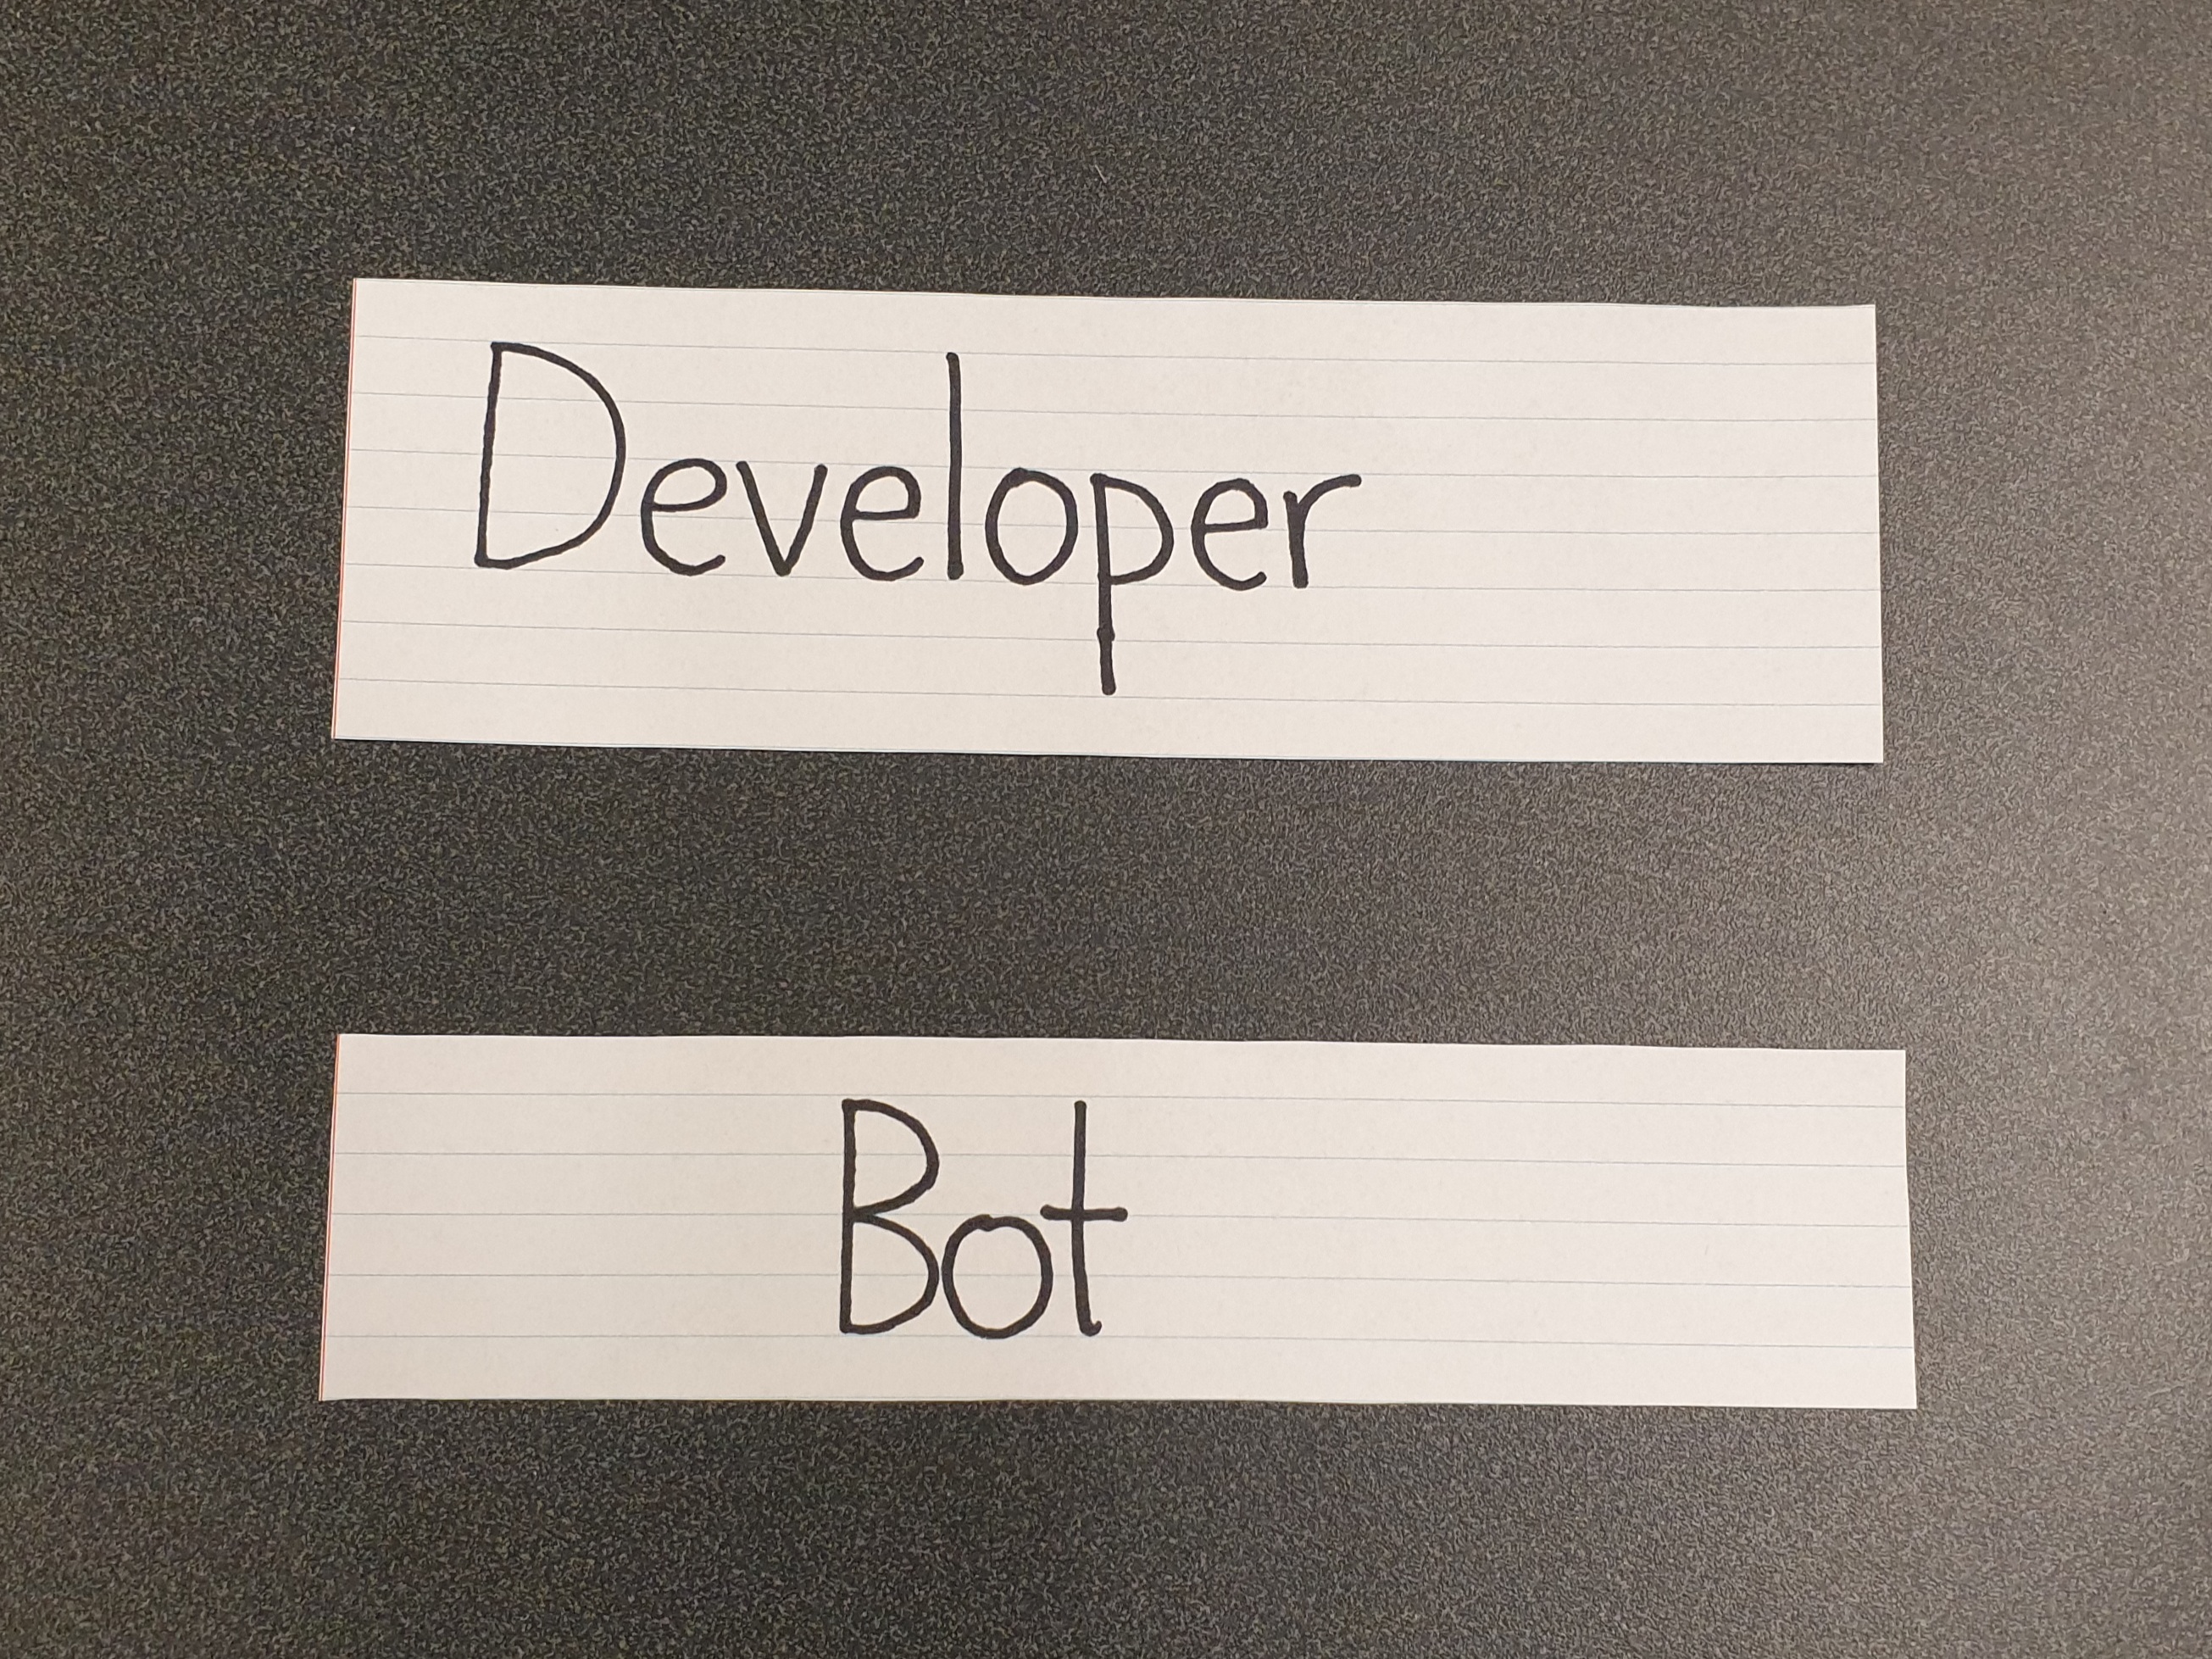 Developer
Bot